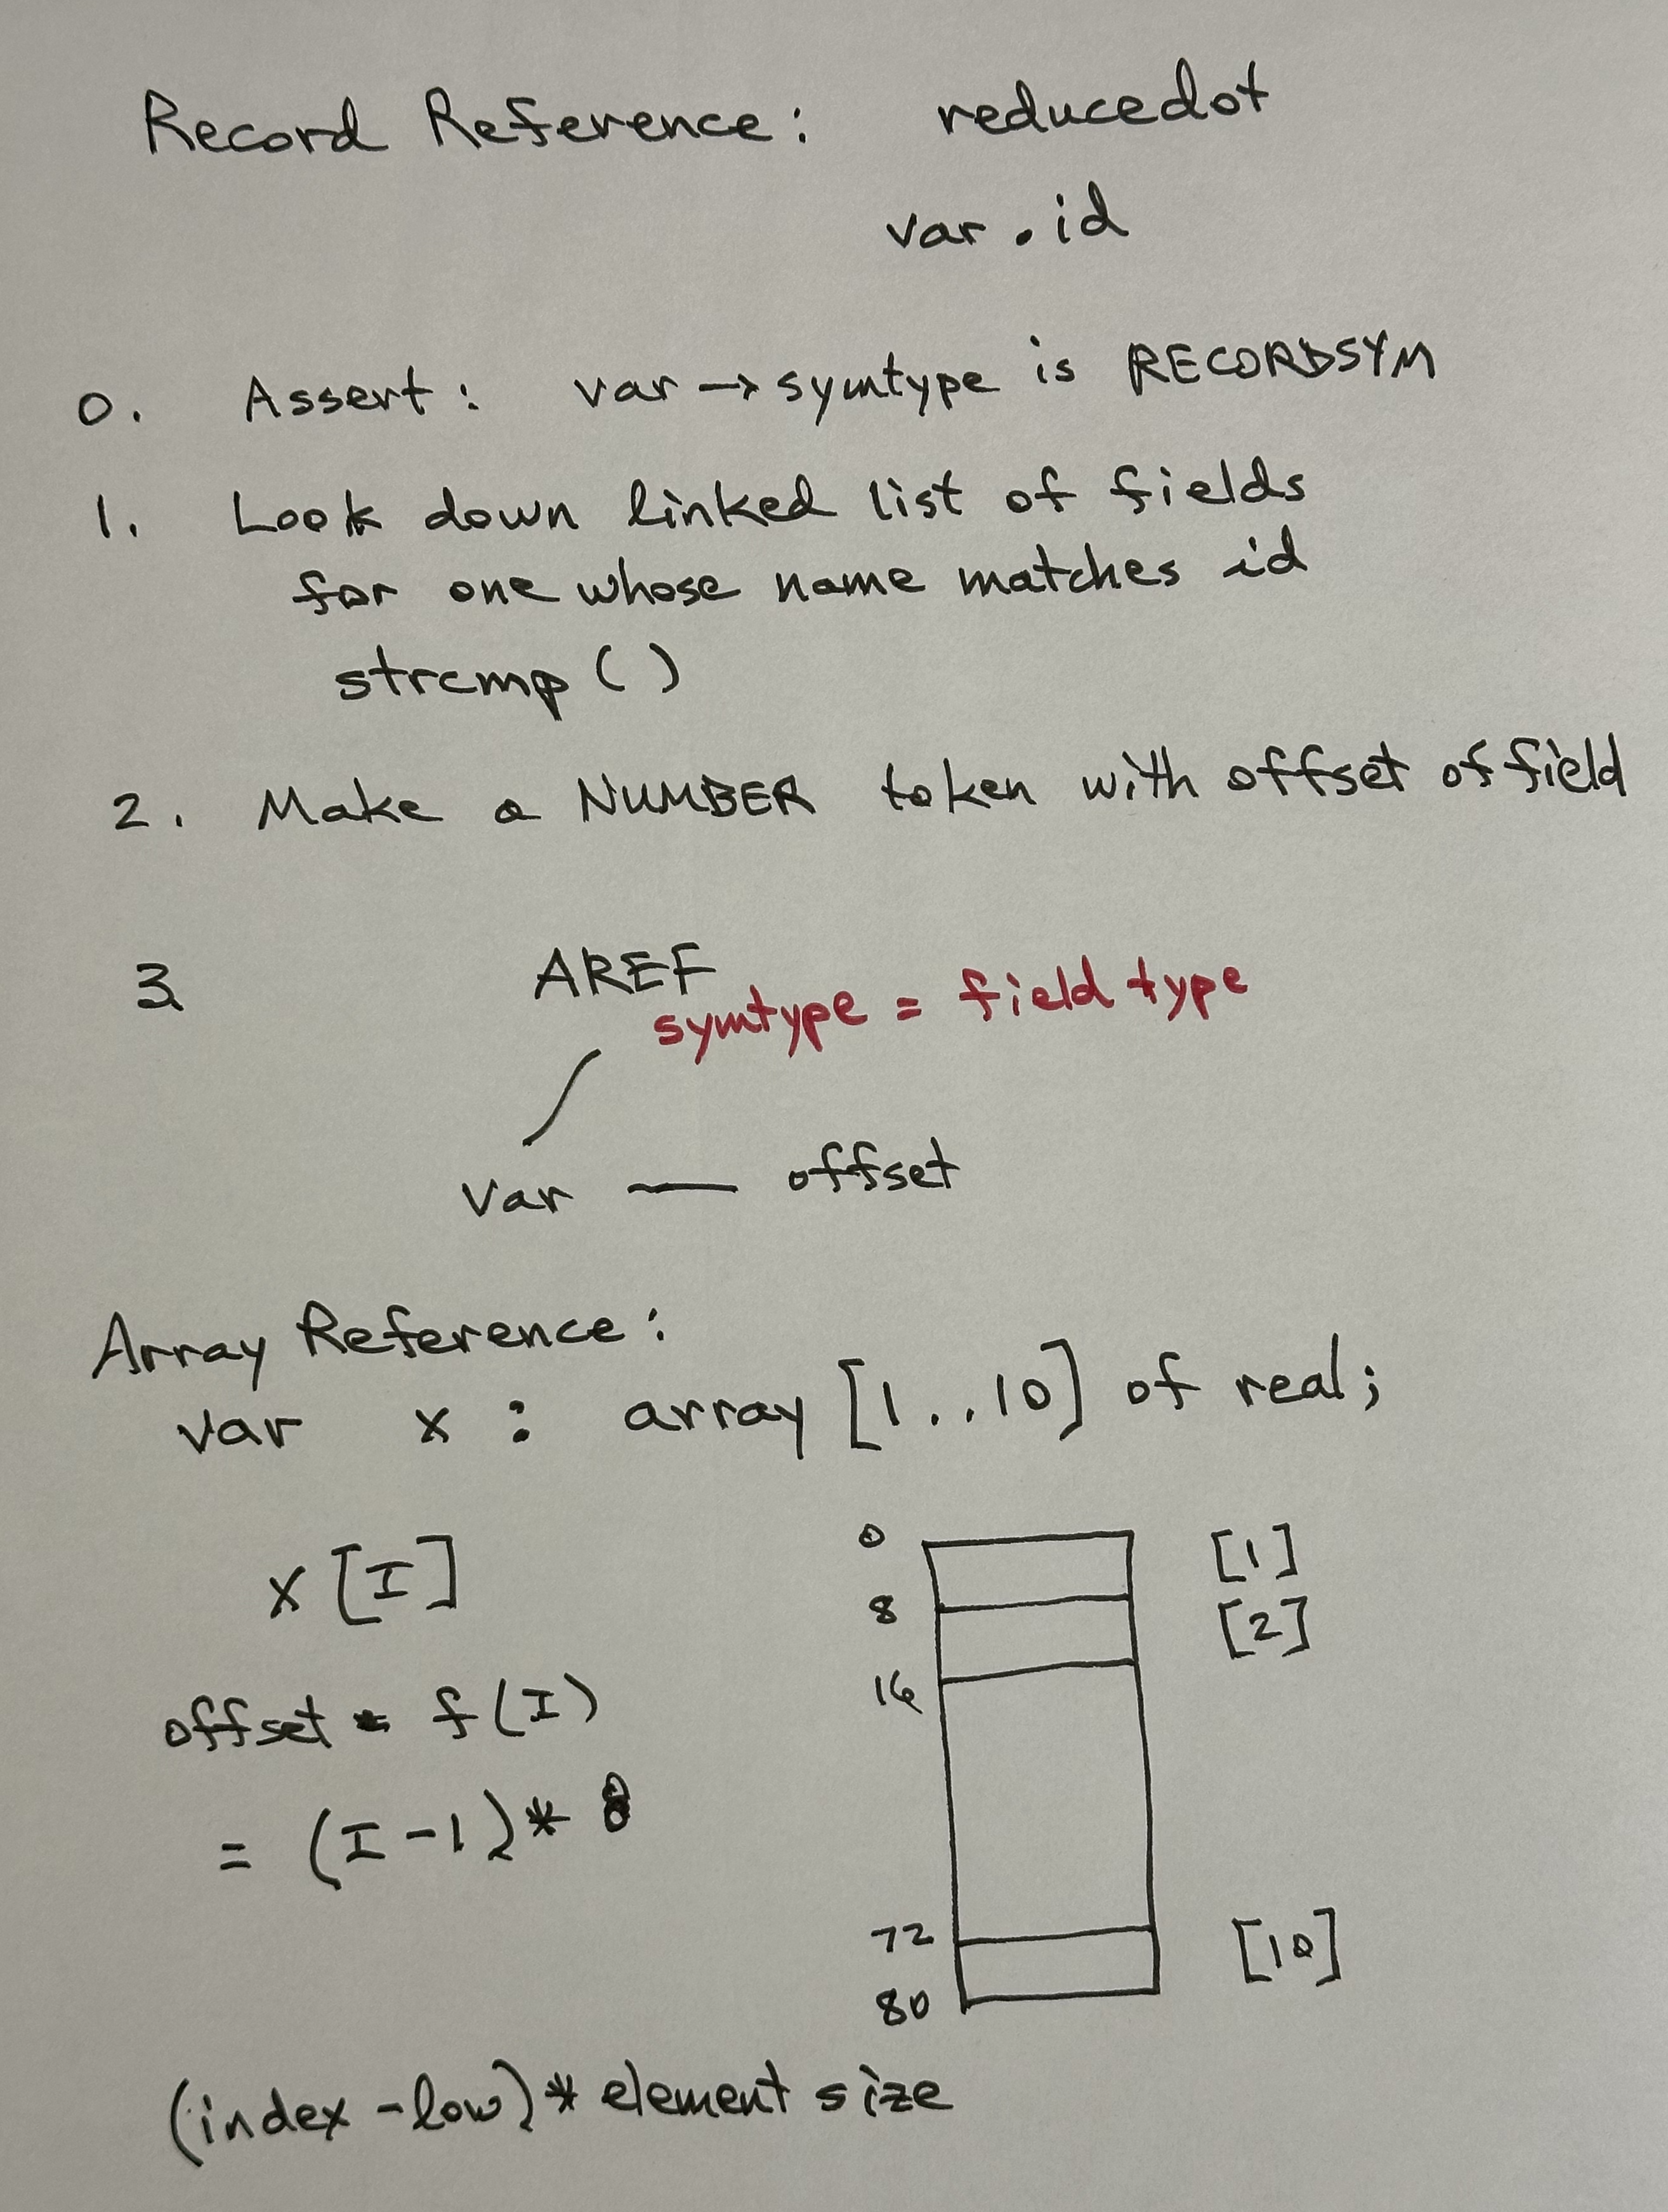 Record Reference: reducedot
var . id
0. Assert: var → symtype is RECORDSYM
1. Look down linked list of fields
for one whose name matches id
strcmp ( )
2. Make a NUMBER token with offset of field
3. AREF
symtype = field type
var — offset
Array Reference:
var x : array [1..10] of real;
x [I]
offset = f(I)
= (I-1)* 8
0 [1]
8 [2]
16
72 [10]
80
(index - low)* element size